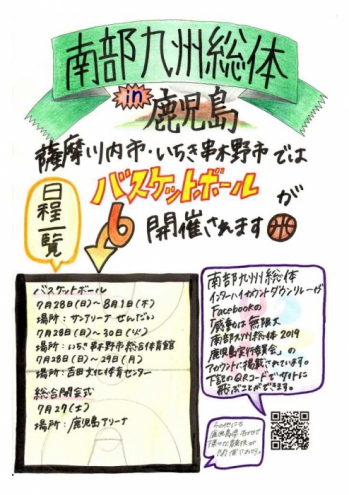 南部九州総体
in 鹿児島
薩摩川内市・いちき串木野市では
バスケットボールが
開催されます
日程一覧
バスケットボール
7月28日(日)〜8月1日(木)
場所:サンアリーナせんだい
7月28日(日)〜30日(火)
場所:いちき串木野市総合体育館
7月28日(日)〜29日(月)
場所:吉田文化体育センター
総合開会式
7月27(土)
場所:鹿児島アリーナ
南部九州総体
インターハイカウントダウンリレーが
Facebookの
「感動は無限大
南部九州総体2019
鹿児島実行委員会」の
アカウントに掲載されています。
下記のQRコードでサイトに
飛ぶことができます。
その他にも